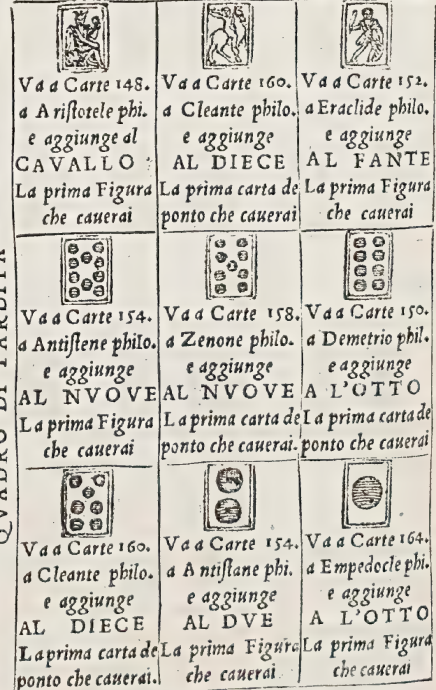 Va a Carte 148.
a Ariſtotele phi.
e aggiunge al
CAVALLO
La prima Figura
che cauerai
Va a Carte 160.
a Cleante philo.
e aggiunge
AL DIECE
La prima carta de
ponto che cauerai
Va a Carte 152.
a Eraclide philo.
e aggiunge
AL FANTE
La prima Figura
che cauerai
QVADRO DI PARDITA
Va a Carte 154.
a Antiſtene philo.
e aggiunge
AL NVOVE
La prima Figura
che cauerai
Va a Carte 158.
a Zenone philo.
e aggiunge
AL NVOVE
La prima carta de
ponto che cauerai.
Va a Carte 150.
a Demetrio phil.
e aggiunge
A L'OTTO
La prima carta de
ponto che cauerai
Va a Carte 160.
a Cleante philo.
e aggiunge
AL DIECE
La prima carta de
ponto che cauerai.
Va a Carte 154.
a Antiſtane phi.
e aggiunge
AL DVE
La prima Figura
che cauerai
Va a Carte 164.
a Empedocle phi.
e aggiunge
A L'OTTO
La prima Figura
che cauerai